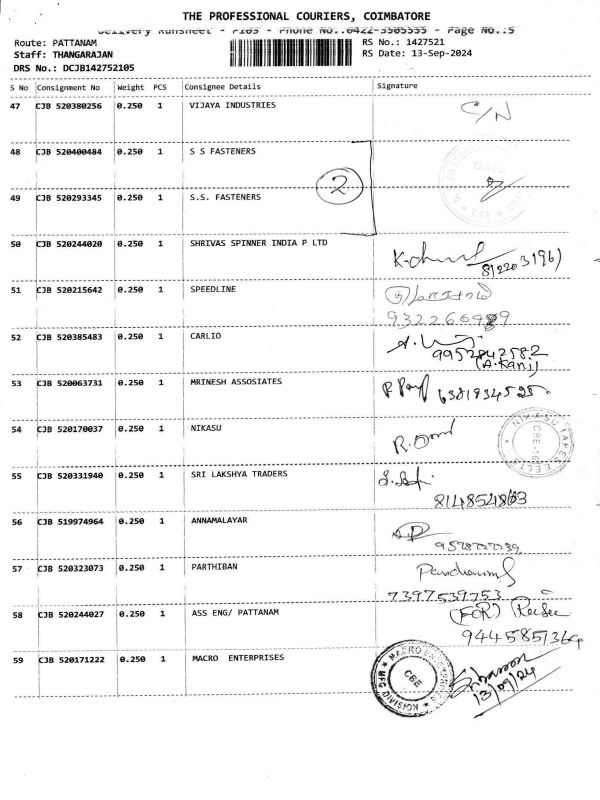 THE PROFESSIONAL COURIERS, COIMBATORE
Delivery Runsheet - P103 - Phone No.:0422-3505555 - Page No.:5
Route: PATTANAM
RS No.: 1427521
Staff: THANGARAJAN
RS Date: 13-Sep-2024
DRS No.: DCJB142752105
S No Consignment No Weight PCS Consignee Details Signature
47 CJB 520380256 0.250 1 VIJAYA INDUSTRIES C/N
48 CJB 520400484 0.250 1 S S FASTENERS
2
49 CJB 520293345 0.250 1 S.S. FASTENERS
CBE
50 CJB 520244020 0.250 1 SHRIVAS SPINNER INDIA P LTD
51 CJB 520215642 0.250 1 SPEEDLINE
52 CJB 520385483 0.250 1 CARLIO
9952842582
(A.Kani)
53 CJB 520063731 0.250 1 MRINESH ASSOSIATES
6381934525
54 CJB 520170037 0.250 1 NIKASU
NIKASU TAPES
CBE-16
55 CJB 520331940 0.250 1 SRI LAKSHYA TRADERS
56 CJB 519974964 0.250 1 ANNAMALAYAR
57 CJB 520323073 0.250 1 PARTHIBAN
7397539753
58 CJB 520244027 0.250 1 ASS ENG/ PATTANAM
(FOR)
59 CJB 520171222 0.250 1 MACRO ENTERPRISES
MACRO ENTERPRISES
CBE
MFG DIVISION
13/09/24